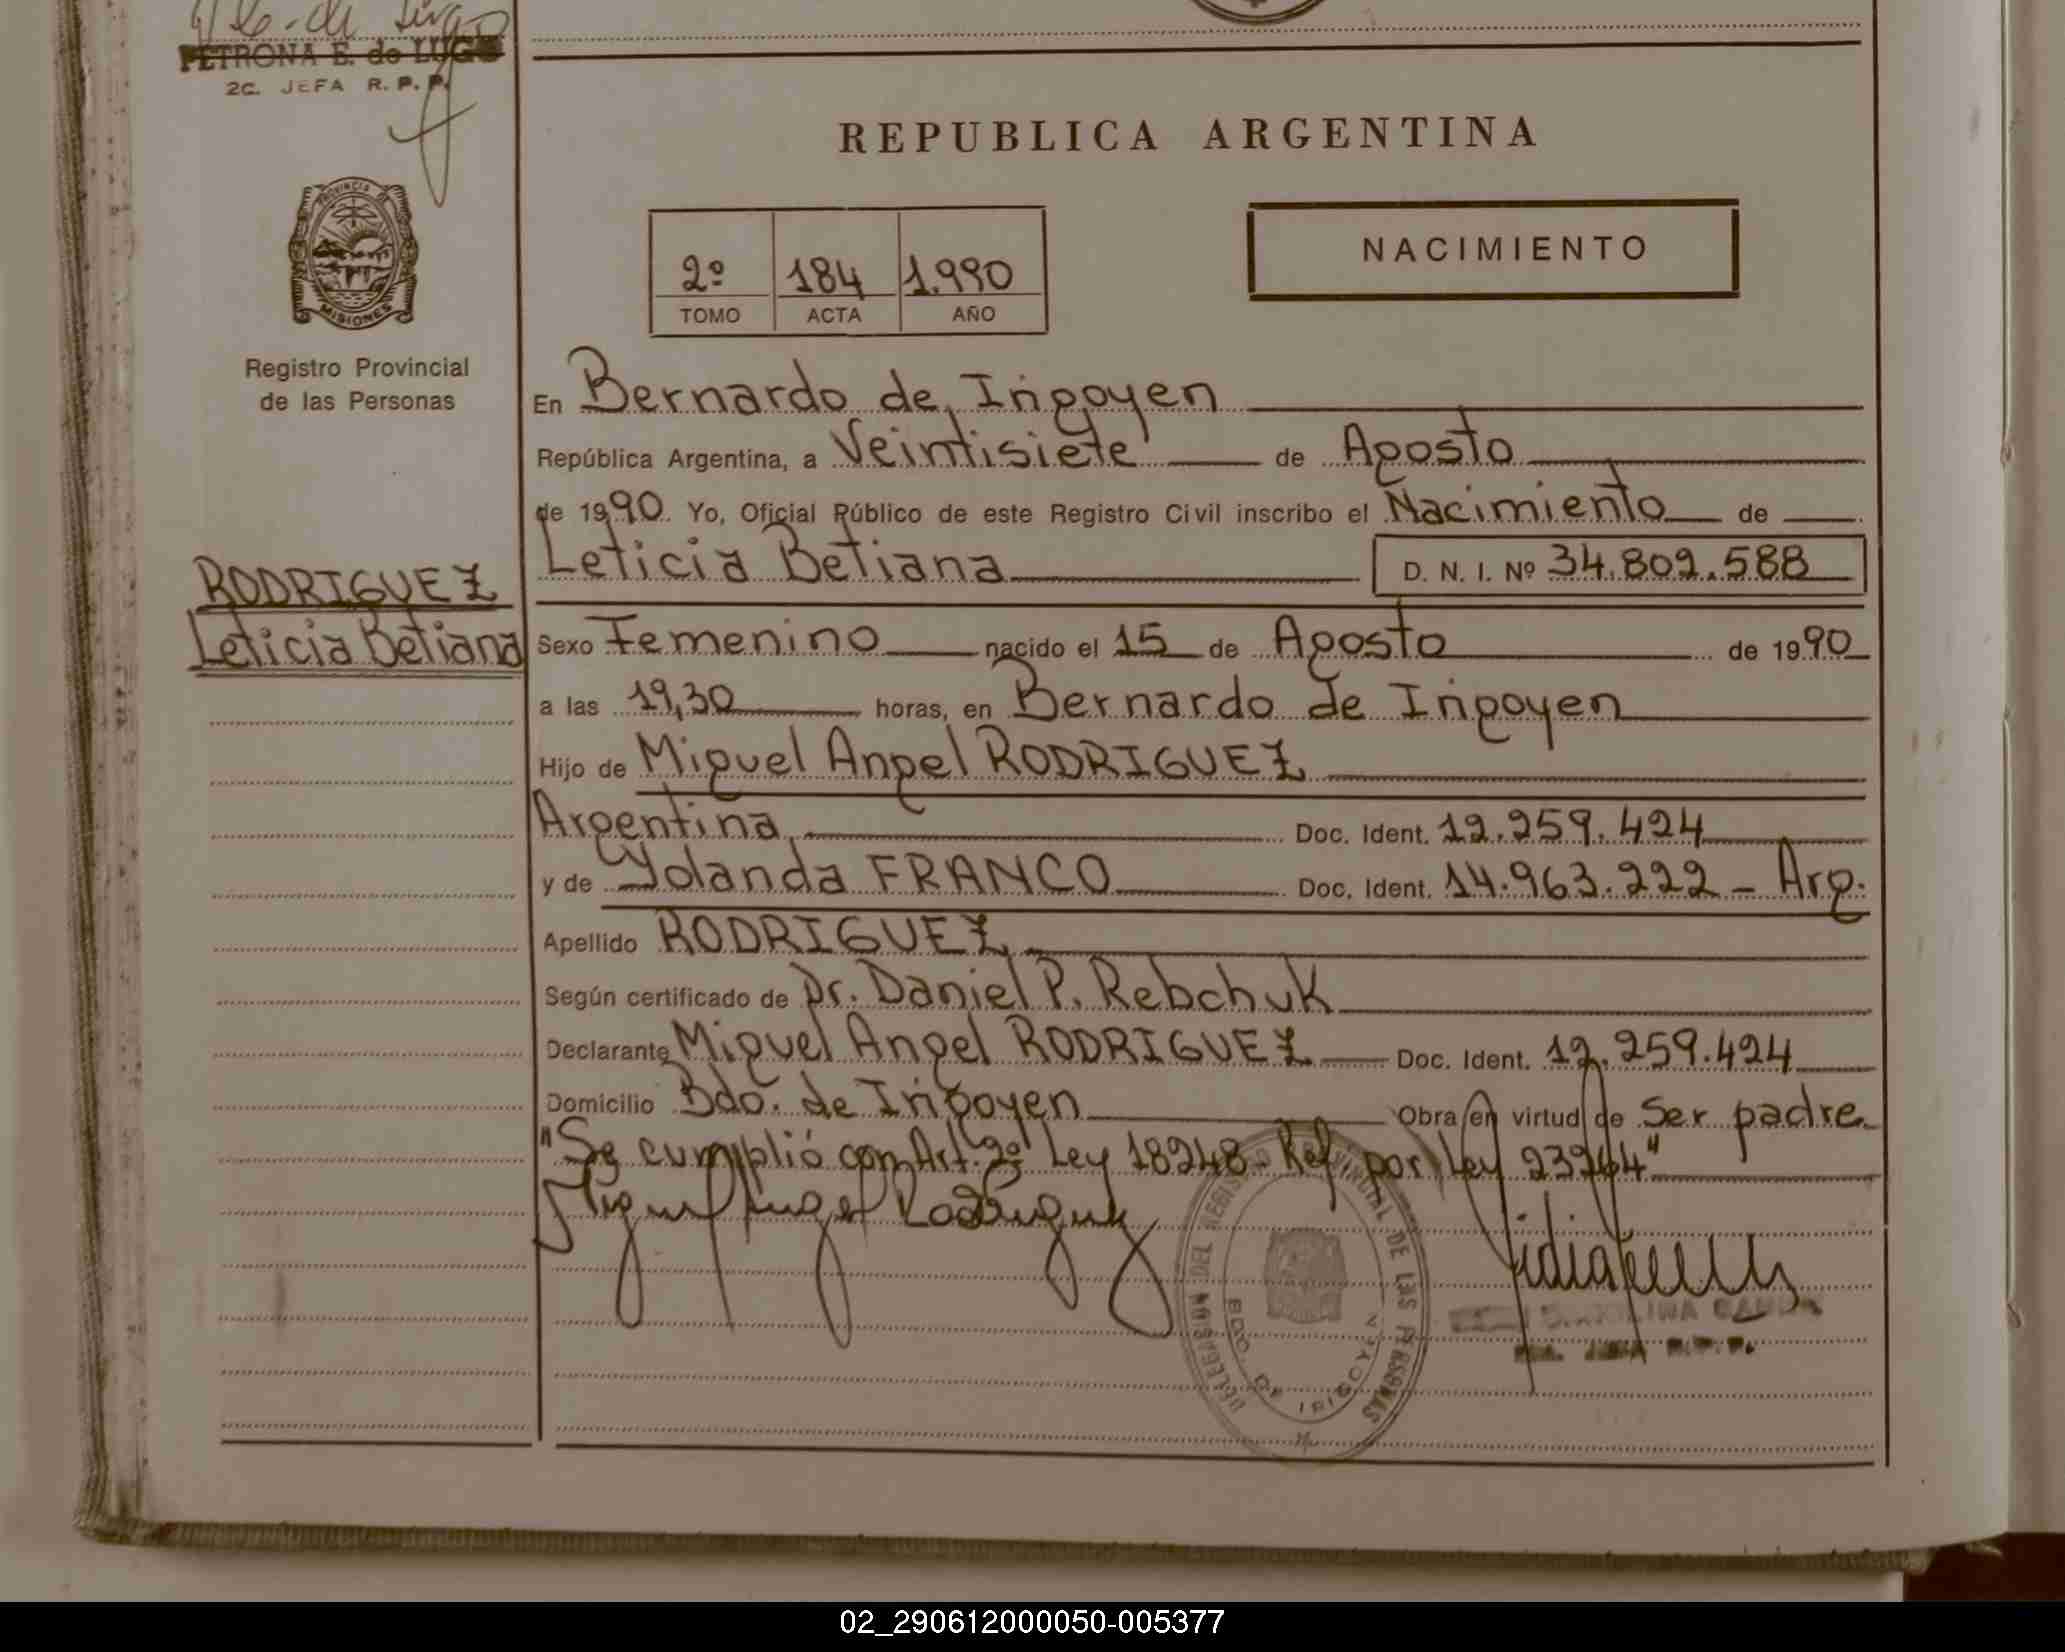 PETRONA E. de LUGO
2C. JEFA R. P. P.
REPUBLICA ARGENTINA
PROVINCIA DE
MISIONES
Registro Provincial
de las Personas
2º 184 1.990
TOMO ACTA AÑO
NACIMIENTO
En Bernardo de Irigoyen
República Argentina, a Veintisiete de Agosto
de 1990 Yo, Oficial Público de este Registro Civil inscribo el Nacimiento de
Leticia Betiana D. N. I. Nº 34.802.588
RODRIGUEZ
Leticia Betiana
Sexo Femenino nacido el 15 de Agosto de 1990
a las 19,30 horas, en Bernardo de Irigoyen
Hijo de Miguel Angel RODRIGUEZ
Argentina Doc. Ident. 12.259.424
y de Yolanda FRANCO Doc. Ident. 14.963.222 - Arg.
Apellido RODRIGUEZ
Según certificado de Dr. Daniel P. Rebchuk
Declarante Miguel Angel RODRIGUEZ Doc. Ident. 12.259.424
Domicilio Bdo. de Irigoyen Obra en virtud de Ser padre
"Se cumplió con Art. 2º Ley 18248 - Ref. por Ley 23264"
Miguel Angel Rodriguez
DELEGACION DEL REGISTRO PROVINCIAL DE LAS PERSONAS
BDO. DE IRIGOYEN
02_290612000050-005377